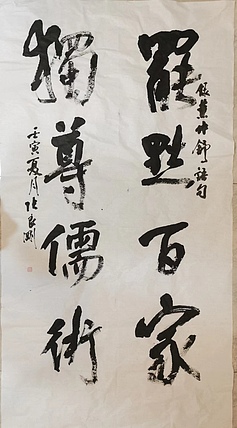 罷黜百家
董仲舒語句
獨尊儒術
壬寅夏月